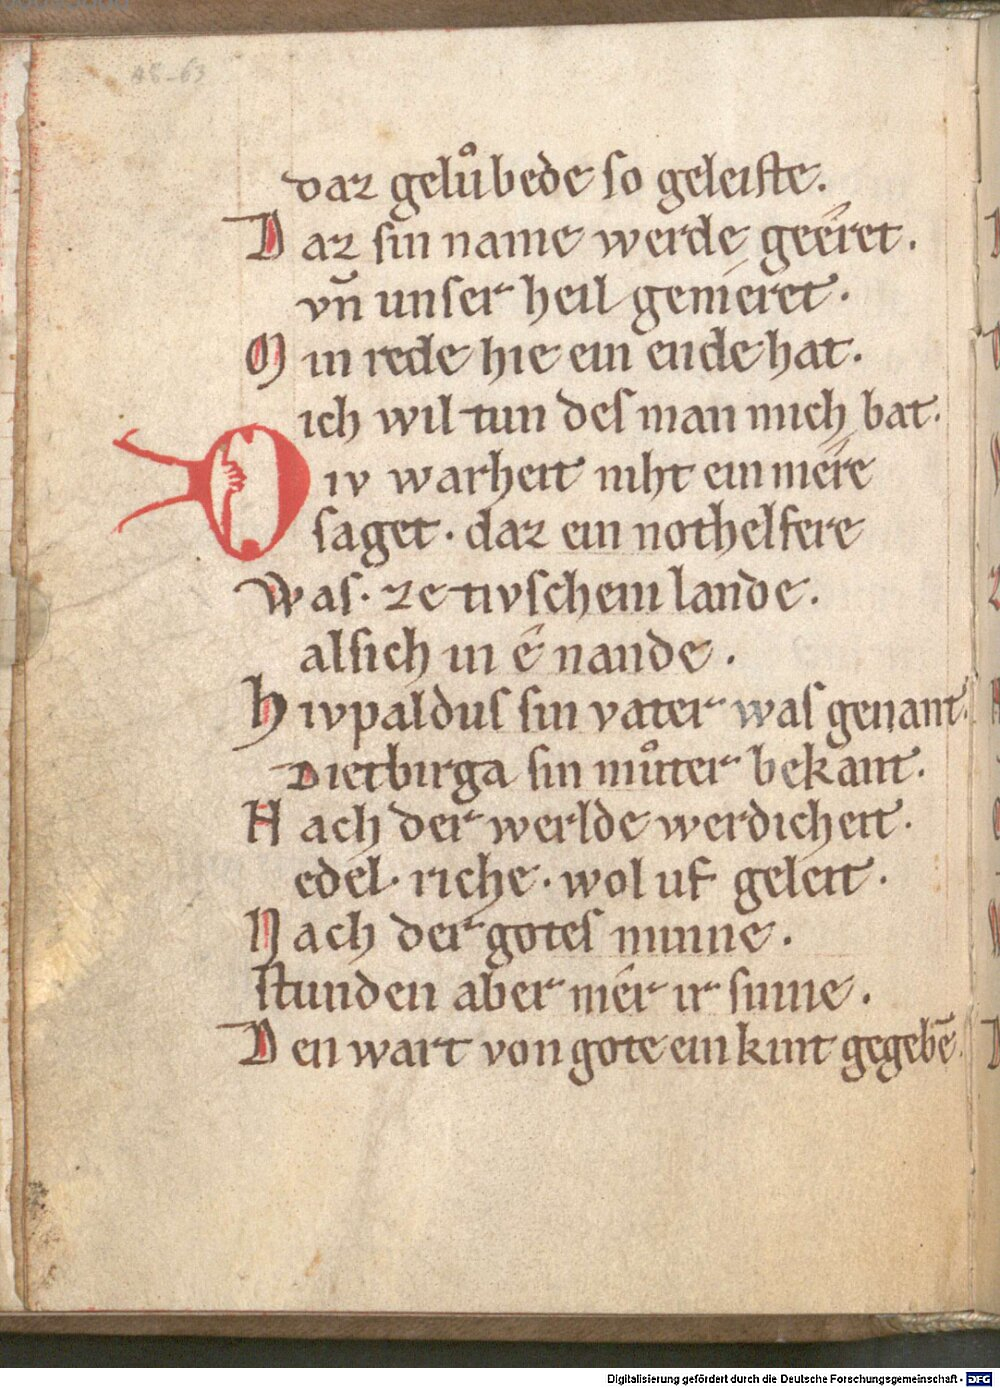 48-63
daz gelůbede so geleiste.
Daz sin name werde geêret.
vn̄ unser heil gemeret.
Min rede hie ein ende hat.
ich wil tun des man mich bat.
Div warheit niht ein mere
saget. daz ein nothelfere
Was. ze tivschem lande.
als ich iu ê nande.
Hivpaldus sin vater was genant.
Dietbirga sin můter bekant.
Nach der werlde werdicheit.
edel. riche. wol uf geleit.
Nach der gotes minne.
stunden aber mêr ir sinne.
Den wart von gote ein kint gegebē.
Digitalisierung gefördert durch die Deutsche Forschungsgemeinschaft - DFG